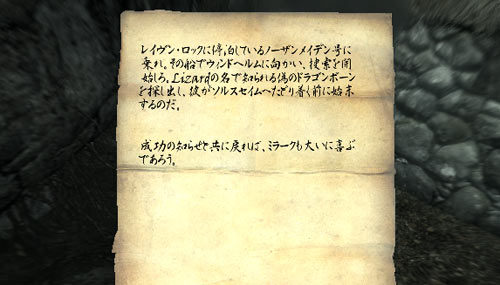 レイヴン・ロックに停泊しているノーザンメイデン号に
乗れ。その船でウィンドヘルムに向かい、捜索を開
始しろ。Lizardの名で知られる偽のドラゴンボーン
を探し出し、彼がソルスセイムへたどり着く前に始末
するのだ。
成功の知らせと共に戻れば、ミラークも大いに喜ぶ
であろう。